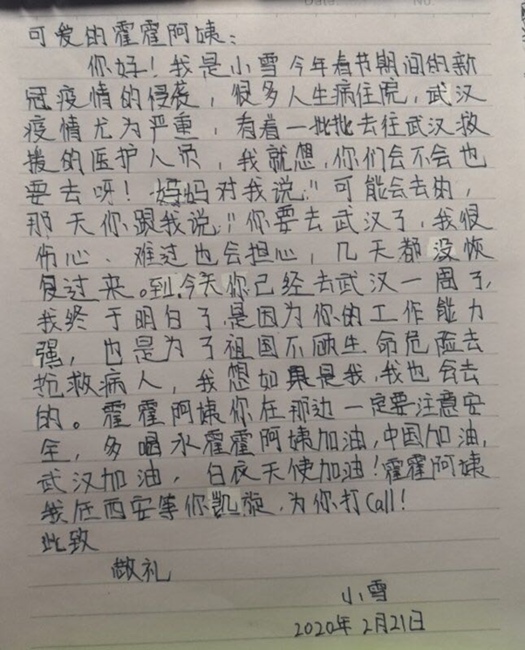 可爱的霍霍阿姨:
你好!我是小雪今年春节期间的新
冠疫情的侵袭,很多人生病住院,武汉
疫情尤为严重,有着一批批去往武汉救
援的医护人员,我就想,你们会不会也
要去呀!妈妈对我说:"可能会去的,
那天你跟我说:"你要去武汉了,我很
伤心、难过也会担心,几天都没恢
复过来。到今天你已经去武汉一周了,
我终于明白了是因为你的工作能力
强,也是为了祖国不顾生命危险去
抢救病人,我想如果是我,我也会去
的。霍霍阿姨你在那边一定要注意安
全,多喝水霍霍阿姨加油,中国加油,
武汉加油,白衣天使加油!霍霍阿姨
我在西安等你凯旋,为你打Call!
此致
敬礼
小雪
2020年2月21日